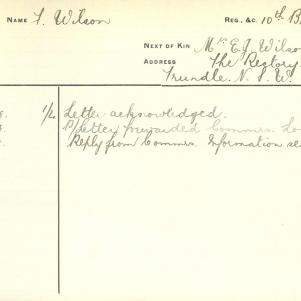 NAME F. Wilson REG., &C. 10th B
NEXT OF KIN Mr. E. J. Wilso
ADDRESS The Rectory
Trundle. N. S. W.
1/4 Letter acknowledged.
Letter forwarded Commrs. Lo
Reply from Commrs. Information se